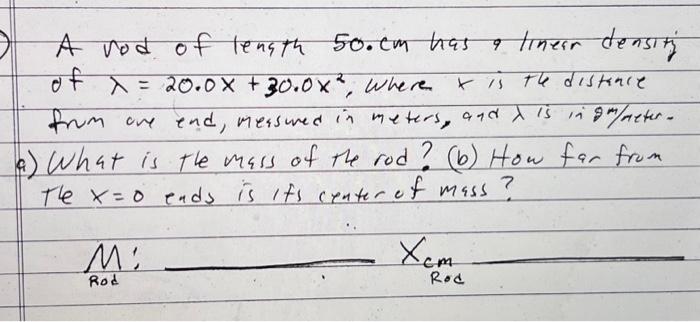 A rod of length 50.cm has a linear density
of λ = 20.0x + 30.0x², where x is the distance
from one end, measured in meters, and λ is in gm/meter.
a) What is the mass of the rod? (b) How far from
the x=0 ends is its center of mass?
M: Xcm
Rod Rod